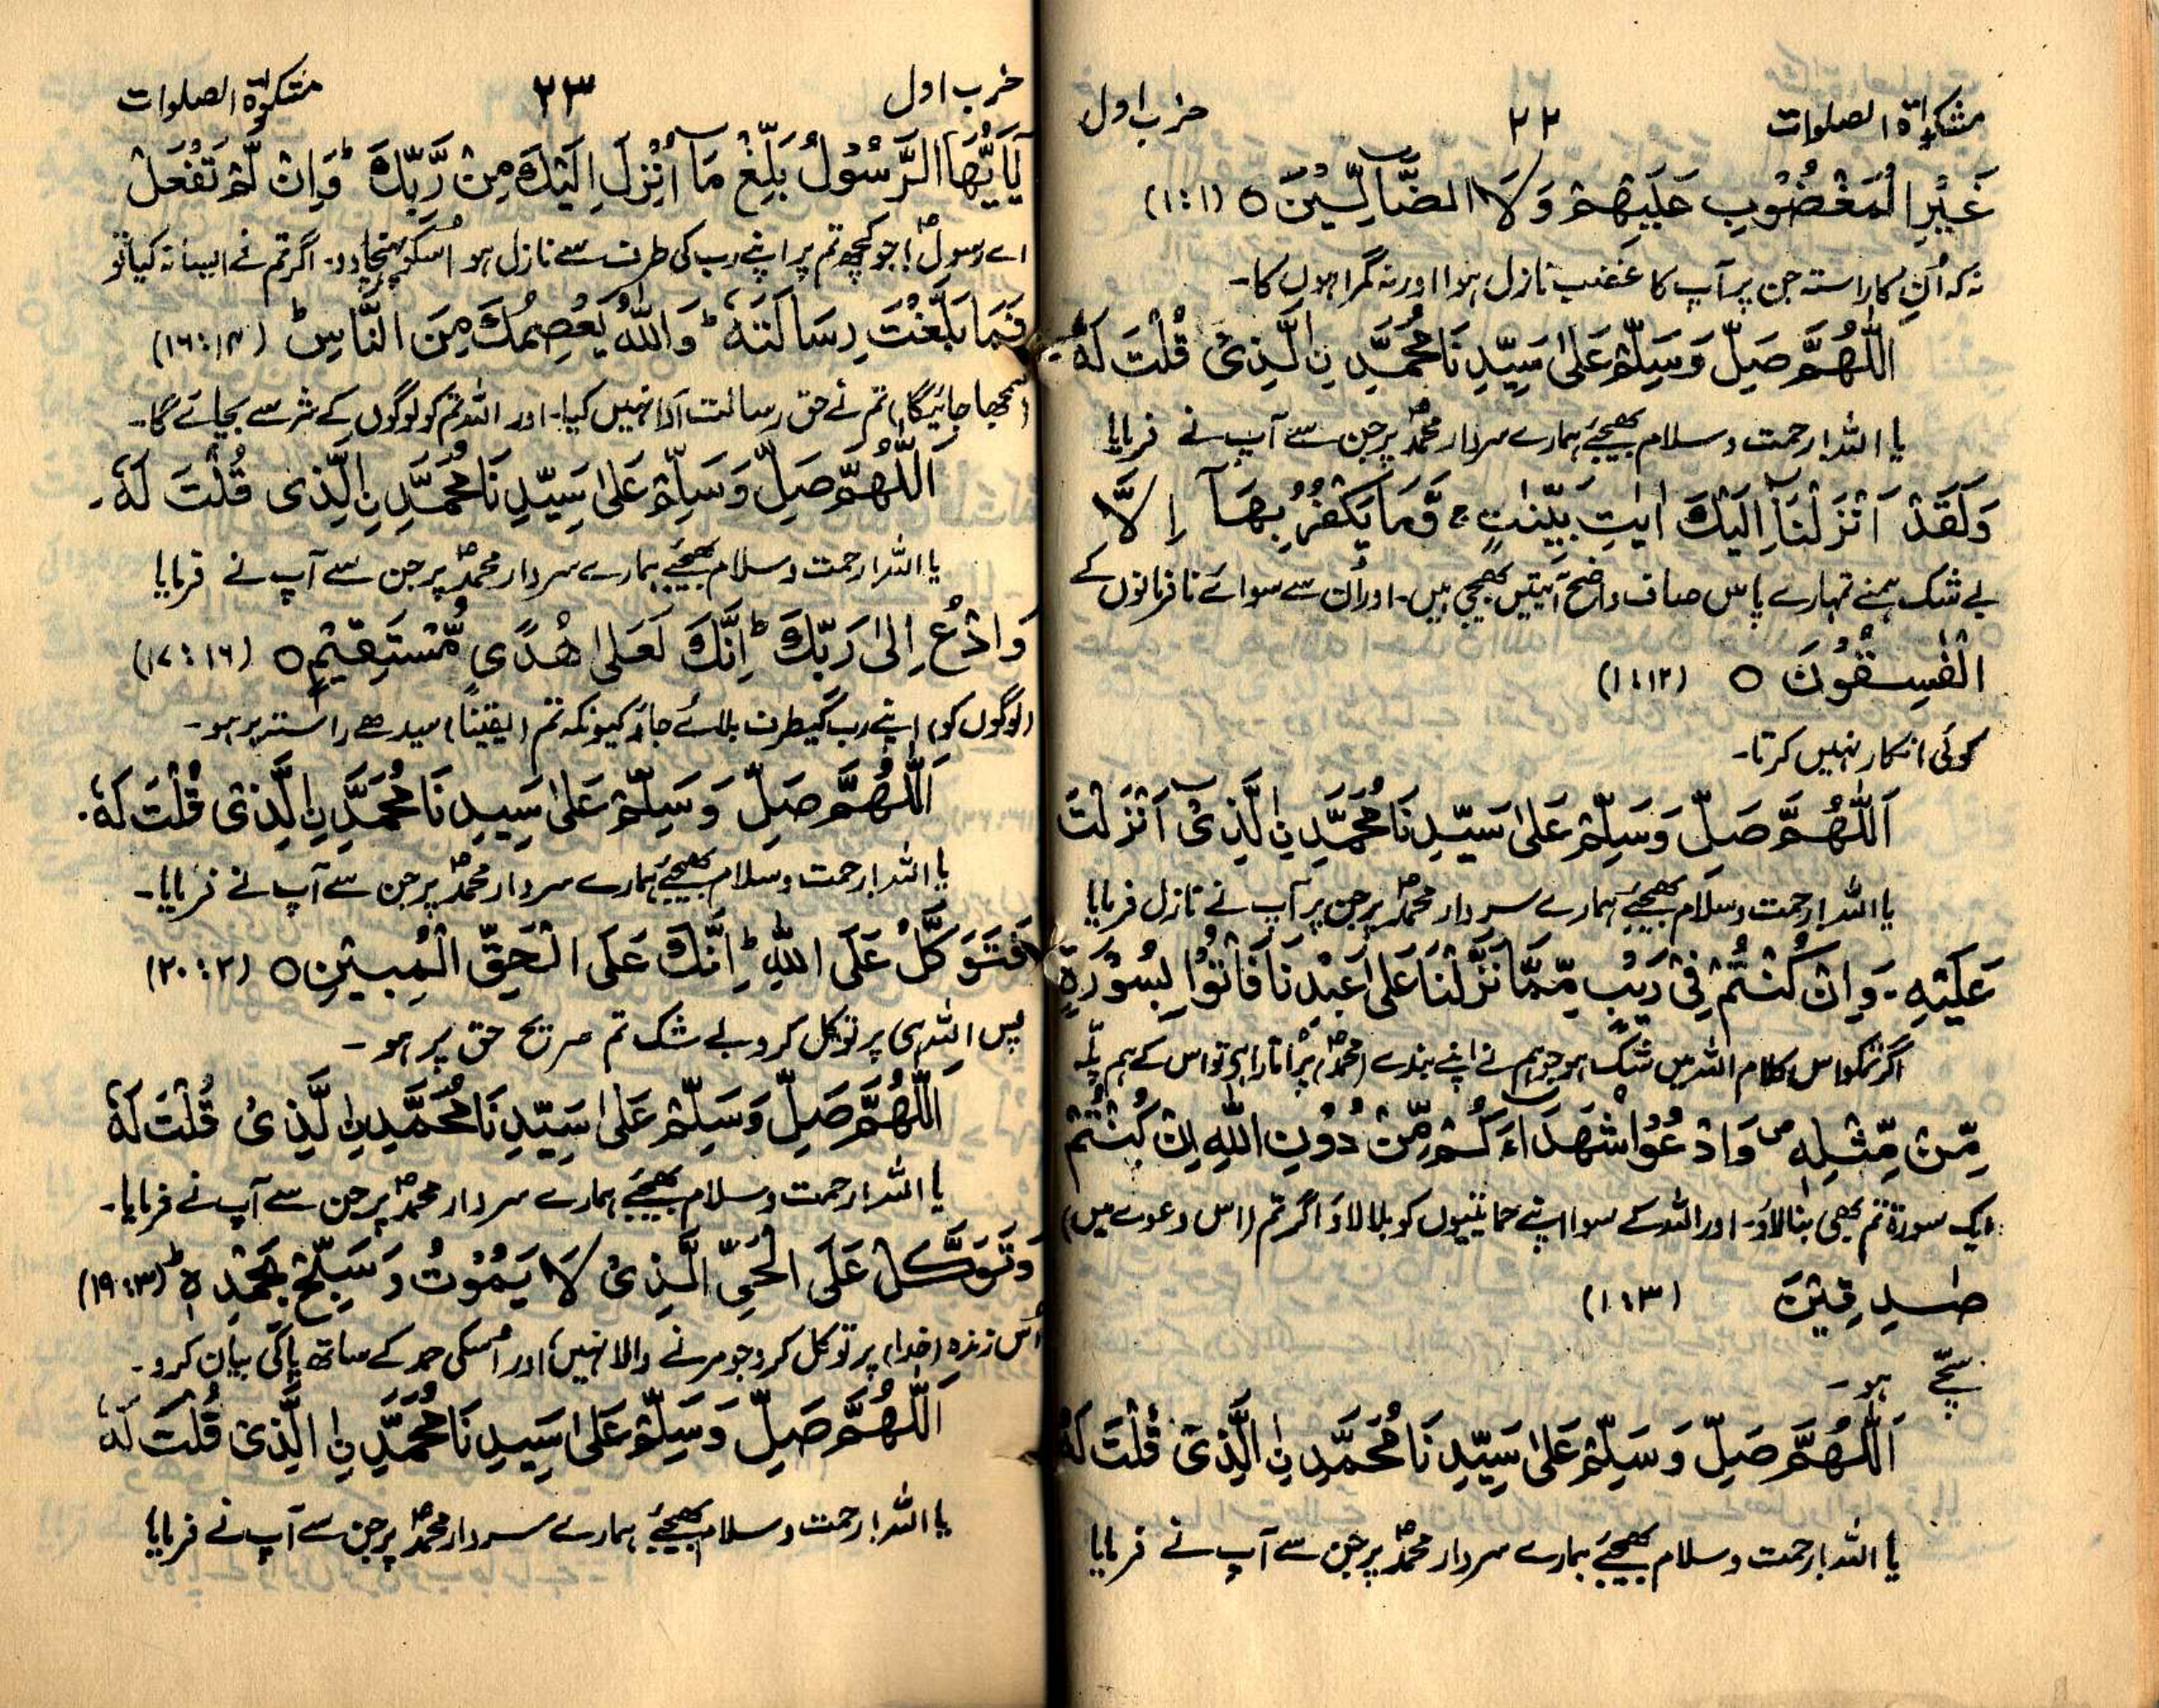 مشکوٰۃ الصلوات ۲۲ حزب اول
غَیْرِ الْمَغْضُوْبِ عَلَیْهِمْ وَلَا الضَّآلِّیْنَ ○ (۱:۱)
نہ کہ اُن کا راستہ جن پر آپ کا غضب نازل ہوا اور نہ گمراہوں کا۔
اَللّٰهُمَّ صَلِّ وَسَلِّمْ عَلٰی سَیِّدِنَا مُحَمَّدِ نِ الَّذِیْ قُلْتَ لَهٗ
یا اللہ! رحمت و سلام بھیجئے ہمارے سردار محمدؐ پر جن سے آپ نے فرمایا
وَلَقَدْ اَنْزَلْنَآ اِلَیْكَ اٰیٰتٍ بَیِّنٰتٍ ۚ وَّمَا یَكْفُرُ بِهَآ اِلَّا
بے شک ہمنے تمہارے پاس صاف واضح آیتیں بھیجی ہیں۔ اور اُن سے سوائے نافرمانوں کے
الْفٰسِقُوْنَ ○ (۱:۱۲)
کوئی انکار نہیں کرتا۔
اَللّٰهُمَّ صَلِّ وَسَلِّمْ عَلٰی سَیِّدِنَا مُحَمَّدِ نِ الَّذِیْٓ اَنْزَلْتَ
یا اللہ! رحمت و سلام بھیجئے ہمارے سردار محمدؐ پر جن پر آپ نے نازل فرمایا
عَلَیْهِ۔ وَاِنْ كُنْتُمْ فِیْ رَیْبٍ مِّمَّا نَزَّلْنَا عَلٰی عَبْدِنَا فَاْتُوْا بِسُوْرَةٍ
اگر تمکو اس کلام اللہ میں شک ہو جو ہم نے اپنے بندے (محمدؐ) پر اتارا ہی تو اس کے ہم پلّہ
مِّنْ مِّثْلِهٖ ص وَادْعُوْا شُهَدَآءَكُمْ مِّنْ دُوْنِ اللّٰهِ اِنْ كُنْتُمْ
ایک سورۃ تم بھی بنالاؤ۔ اور اللہ کے سوا اپنے حمائتیوں کو بلا لاؤ اگر تم (اس دعوے میں)
صٰدِقِیْنَ (۱:۳)
سچّے ہو۔
اَللّٰهُمَّ صَلِّ وَسَلِّمْ عَلٰی سَیِّدِنَا مُحَمَّدِ نِ الَّذِیْ قُلْتَ لَهٗ
یا اللہ! رحمت و سلام بھیجئے ہمارے سردار محمدؐ پر جن سے آپ نے فرمایا
حزب اول ۲۳ مشکوٰۃ الصلوات
یٰٓاَیُّهَا الرَّسُوْلُ بَلِّغْ مَآ اُنْزِلَ اِلَیْكَ مِنْ رَّبِّكَ ؕ وَاِنْ لَّمْ تَفْعَلْ
اے رسولؐ! جو کچھ تم پر اپنے رب کی طرف سے نازل ہو اُسکو پہنچا دو۔ اگر تم نے ایسا نہ کیا تو
فَمَا بَلَّغْتَ رِسَالَتَهٗ ؕ وَاللّٰهُ یَعْصِمُكَ مِنَ النَّاسِ ؕ (۱۶:۱۴)
(سمجھا جائیگا) تم نے حق رسالت ادا نہیں کیا۔ اور اللہ تم کو لوگوں کے شر سے بچائے گا۔
اَللّٰهُمَّ صَلِّ وَسَلِّمْ عَلٰی سَیِّدِنَا مُحَمَّدِ نِ الَّذِیْ قُلْتَ لَهٗ۔
یا اللہ! رحمت و سلام بھیجئے ہمارے سردار محمدؐ پر جن سے آپ نے فرمایا
وَادْعُ اِلٰی رَبِّكَ ؕ اِنَّكَ لَعَلٰی هُدًی مُّسْتَقِیْمٍ ○ (۱۷:۱۶)
(لوگوں کو) اپنے رب کیطرف بلائے جاؤ کیونکہ تم (یقیناً) سیدھے راستہ پر ہو۔
اَللّٰهُمَّ صَلِّ وَسَلِّمْ عَلٰی سَیِّدِنَا مُحَمَّدِ نِ الَّذِیْ قُلْتَ لَهٗ۔
یا اللہ! رحمت و سلام بھیجئے ہمارے سردار محمدؐ پر جن سے آپ نے فرمایا۔
فَتَوَكَّلْ عَلَی اللّٰهِ ؕ اِنَّكَ عَلَی الْحَقِّ الْمُبِیْنِ ○ (۲۰:۲)
پس اللہ ہی پر توکل کرو بے شک تم صریح حق پر ہو۔
اَللّٰهُمَّ صَلِّ وَسَلِّمْ عَلٰی سَیِّدِنَا مُحَمَّدِ نِ الَّذِیْ قُلْتَ لَهٗ
یا اللہ! رحمت و سلام بھیجئے ہمارے سردار محمدؐ پر جن سے آپ نے فرمایا۔
وَتَوَكَّلْ عَلَی الْحَیِّ الَّذِیْ لَا یَمُوْتُ وَسَبِّحْ بِحَمْدِهٖ ؕ (۱۹:۳)
اُس زندہ (خدا) پر توکل کرو جو مرنے والا نہیں، اور اُسکی حمد کے ساتھ پاکی بیان کرو۔
اَللّٰهُمَّ صَلِّ وَسَلِّمْ عَلٰی سَیِّدِنَا مُحَمَّدِ نِ الَّذِیْ قُلْتَ لَهٗ
یا اللہ! رحمت و سلام بھیجئے ہمارے سردار محمدؐ پر جن سے آپ نے فرمایا